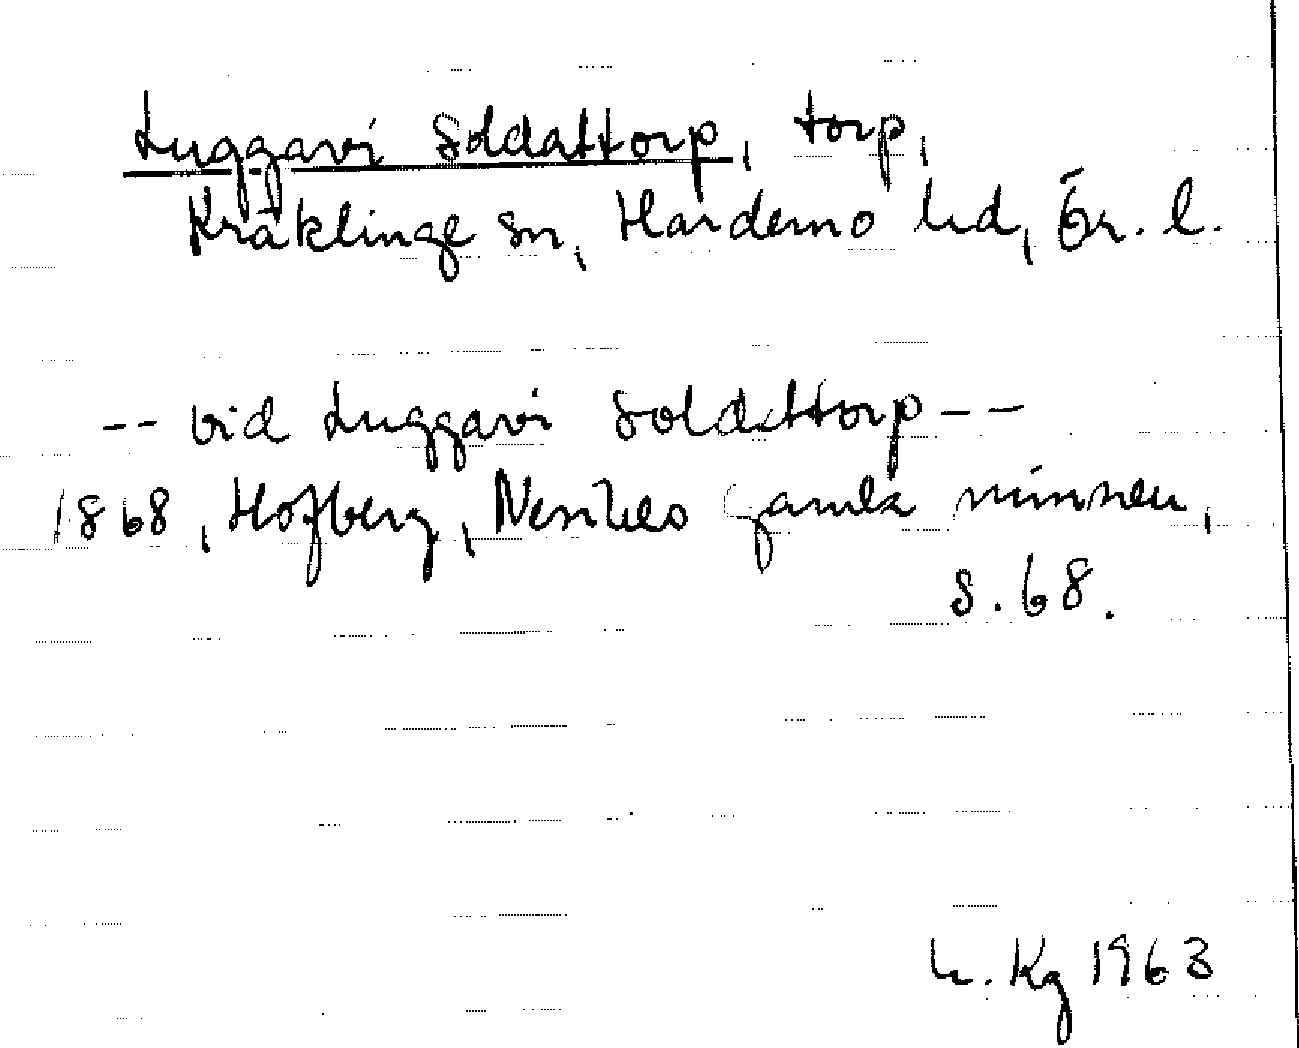 Luggavi Soldattorp, torp,
Kräklinge sn, Hardemo hd, Ör. l.
-- vid Luggavi Soldattorp --
1868, Hofberg, Nerikes gamla minnen,
s. 68.
L. Kg 1963